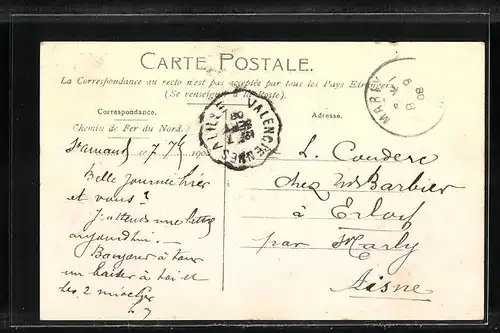 CARTE POSTALE.
La Correspondance au recto n'est pas acceptée par tous les Pays Etrangers
(Se renseigner à la Poste).
Correspondance.
Chemin de Fer du Nord.
St amand 7
Belle Journée hier
et vous ?
J'attends une lettre
aujourd'hui. —
Bonjour à tous
un baiser à toi et
les 2 mioches
Adresse.
L. Couderc
chez Mr Barbier
à Erloy
par Marly
Aisne
VALENCIENNES
MARLY